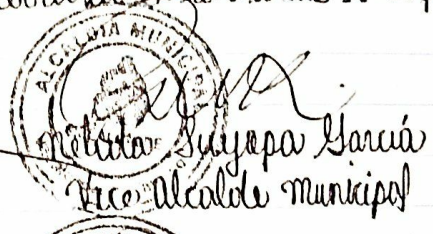 ALCALDIA MUNICIPAL
Nelida Suyapa García
Vice Alcalde Municipal